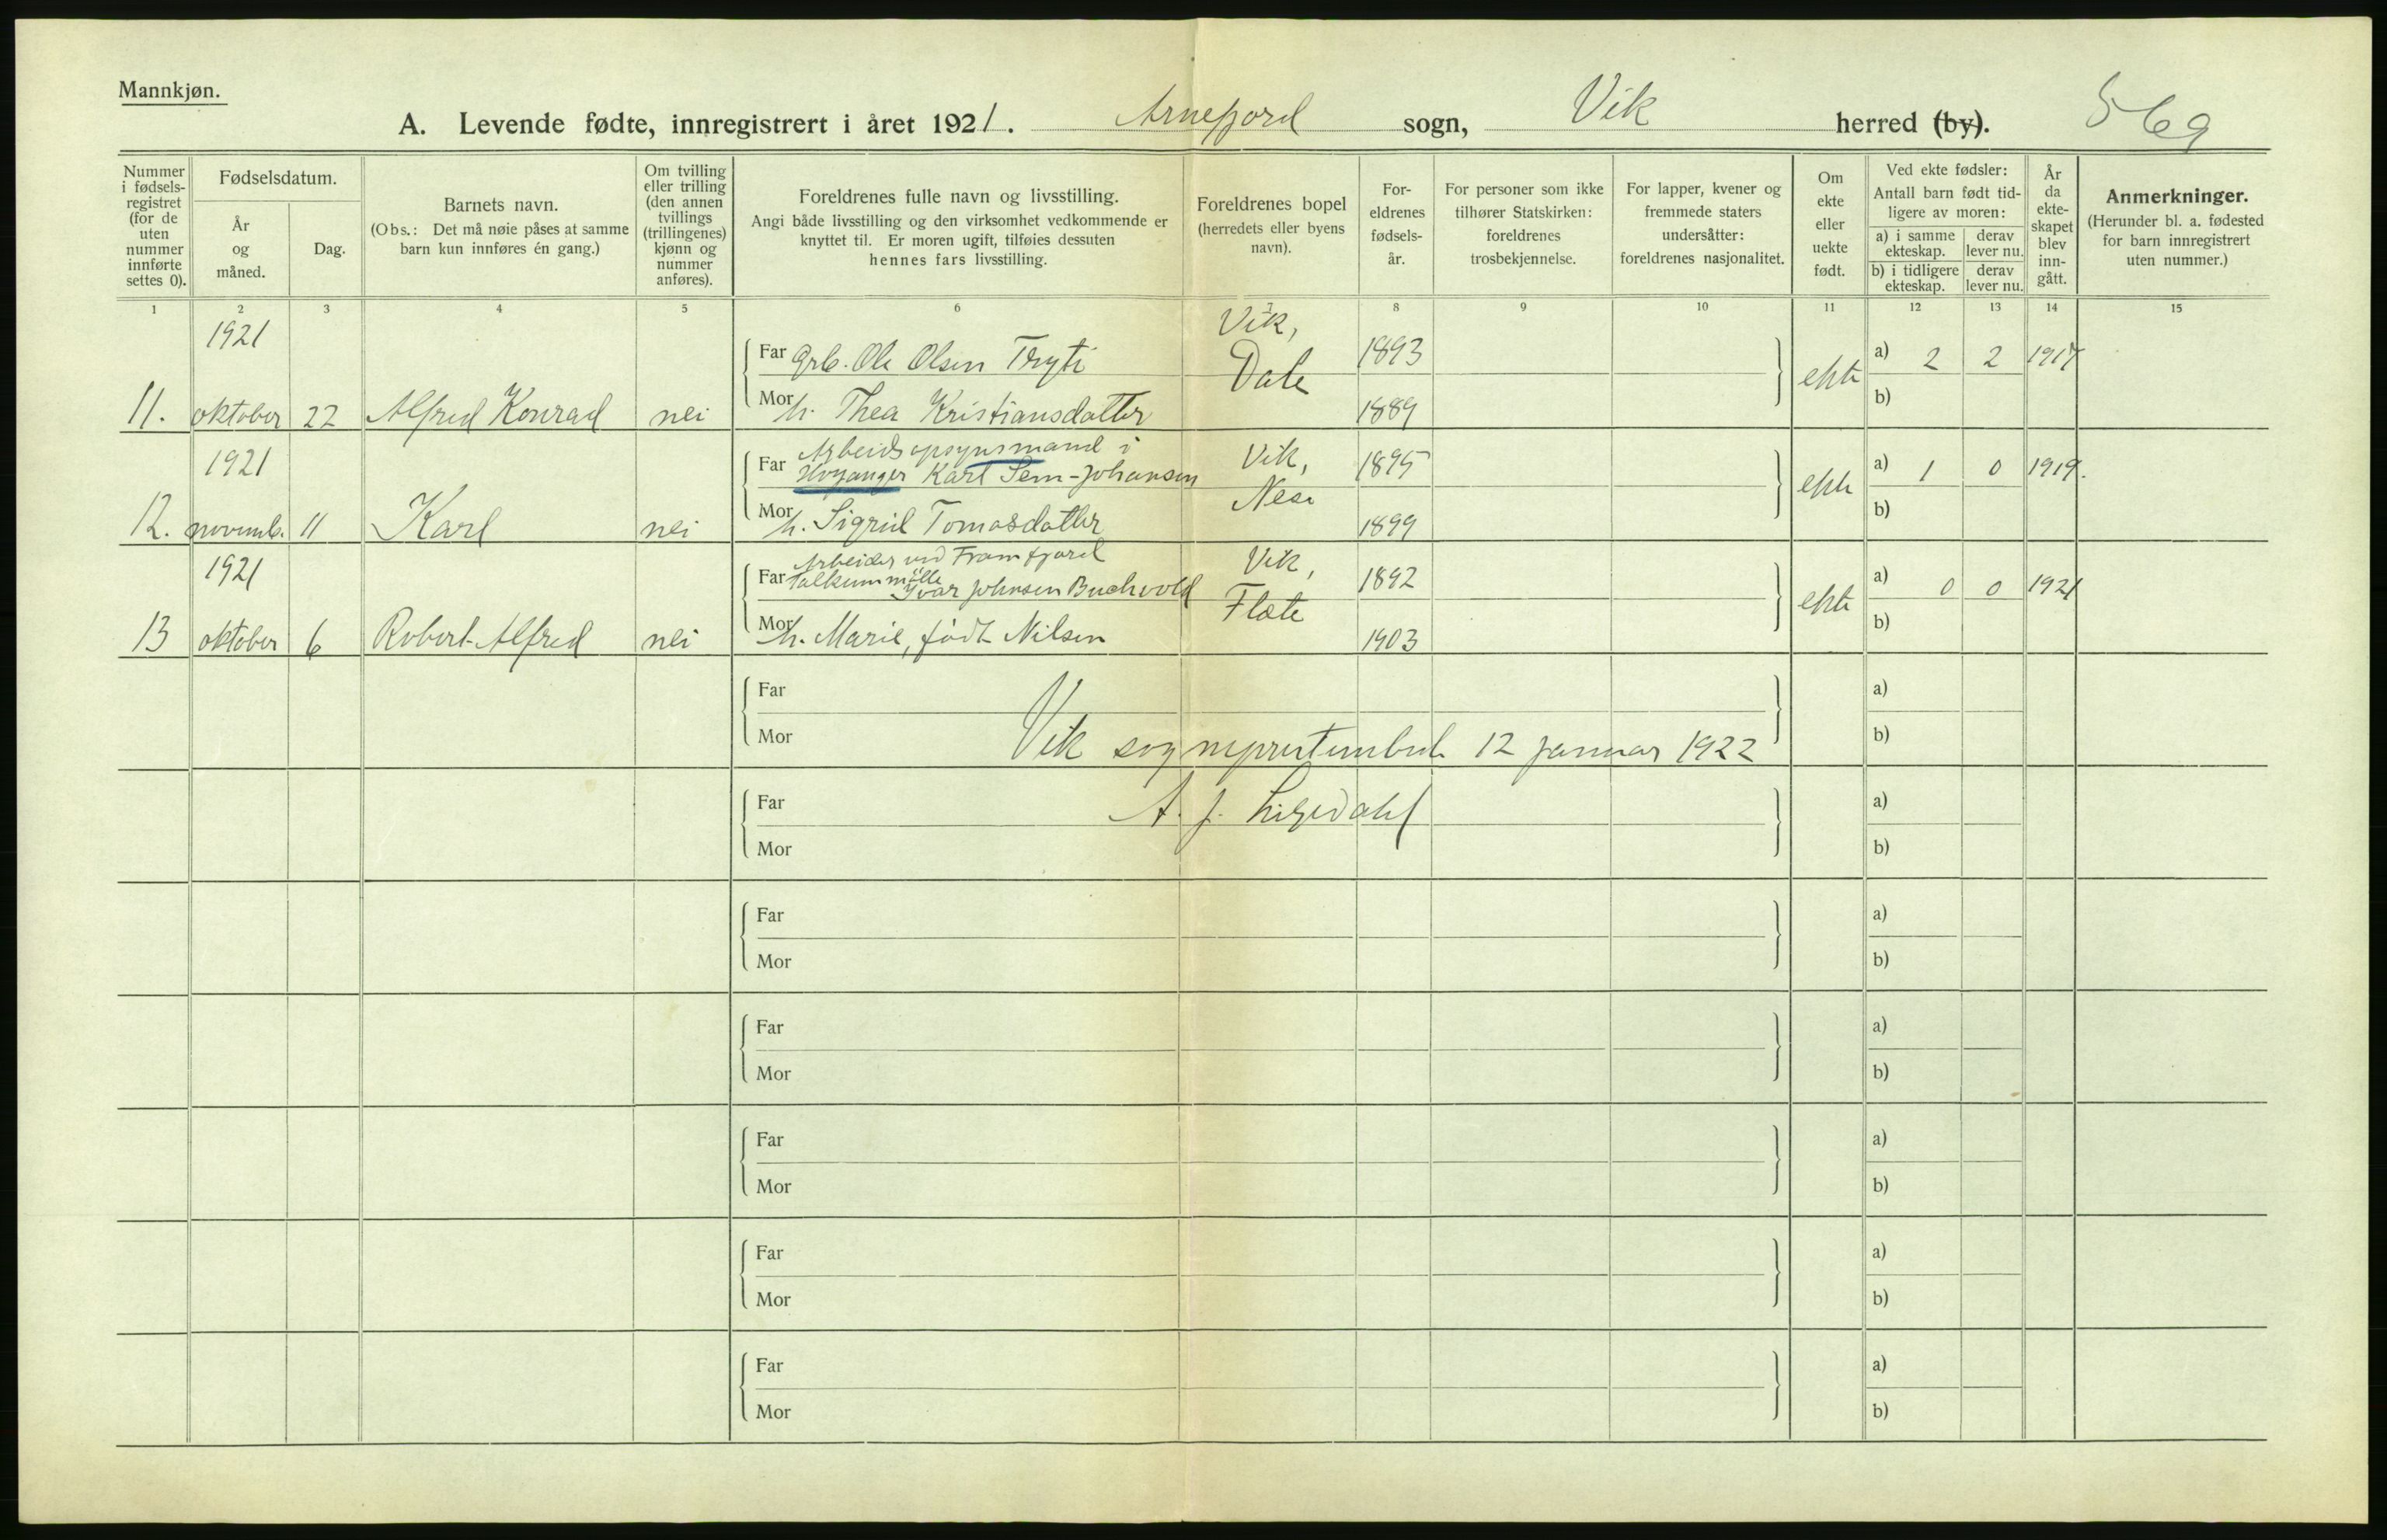 Mannkjøn.
A. Levende fødte, innregistrert i året 1921. Arnefjord sogn, Vik herred (by). 569
Nummer i fødsels-registret (for de uten nummer innførte settes 0).
Fødselsdatum.
År og måned.
Dag.
Barnets navn.
(Obs.: Det må nøie påses at samme barn kun innføres én gang.)
Om tvilling eller trilling (den annen tvillings (trillingenes) kjønn og nummer anføres).
Foreldrenes fulle navn og livsstilling.
Angi både livsstilling og den virksomhet vedkommende er knyttet til. Er moren ugift, tilføies dessuten hennes fars livsstilling.
Foreldrenes bopel (herredets eller byens navn).
For-eldrenes fødsels-år.
For personer som ikke tilhører Statskirken: foreldrenes trosbekjennelse.
For lapper, kvener og fremmede staters undersåtter: foreldrenes nasjonalitet.
Om ekte eller uekte født.
Ved ekte fødsler:
Antall barn født tid-ligere av moren:
a) i samme ekteskap.
derav lever nu.
b) i tidligere ekteskap.
derav lever nu.
År da ekte-skapet blev inn-gått.
Anmerkninger.
(Herunder bl. a. fødested for barn innregistrert uten nummer.)
1 2 3 4 5 6 7 8 9 10 11 12 13 14 15
1921 Far Grb. Ole Olsen Tryti Vik, 1893 a) 2 2 1917
11. oktober 22 Alfred Konrad nei Mor h. Thea Kristiansdatter Dale 1889 ekte b)
1921 Far Arbeidsopsynsmand i
Høyanger Karl Sem-Johansen Vik, 1895 a) 1 0 1919.
12. novemb. 11 Karl nei Mor h. Sigrid Tomasdatter Nese 1899 ekte b)
1921 Far Arbeider ved Framfjord
Talkummølle Ivar Johnsen Buchvold Vik, 1892 a) 0 0 1921
13 oktober 6 Robert Alfred nei Mor h. Marie, født Nilsen Flate 1903 ekte b)
Far a)
Mor b)
Vik sogneprestembede 12 januar 1922
Far a)
A. J.
Mor b)
Far a)
Mor b)
Far a)
Mor b)
Far a)
Mor b)
Far a)
Mor b)
Far a)
Mor b)